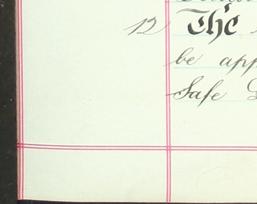 12 The
be app
Safe